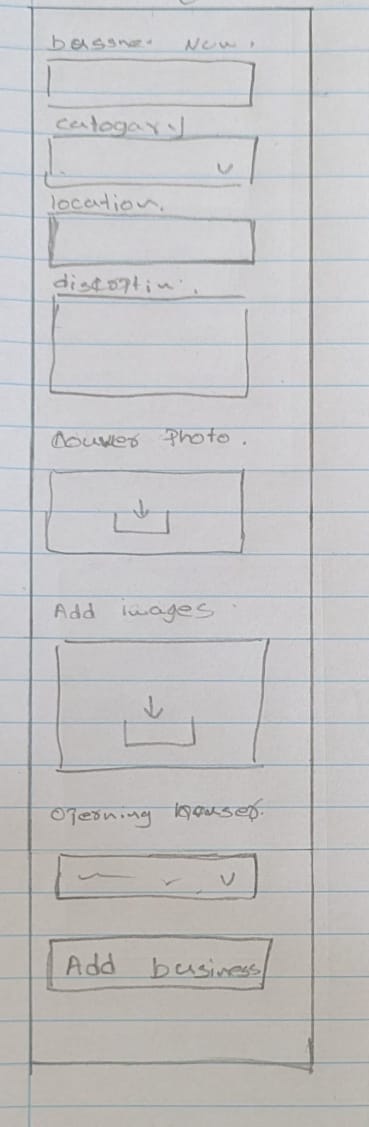 bassne. New.
catogary
location.
discoptin.
couver Photo.
Add images
Oferning houser.
Add business